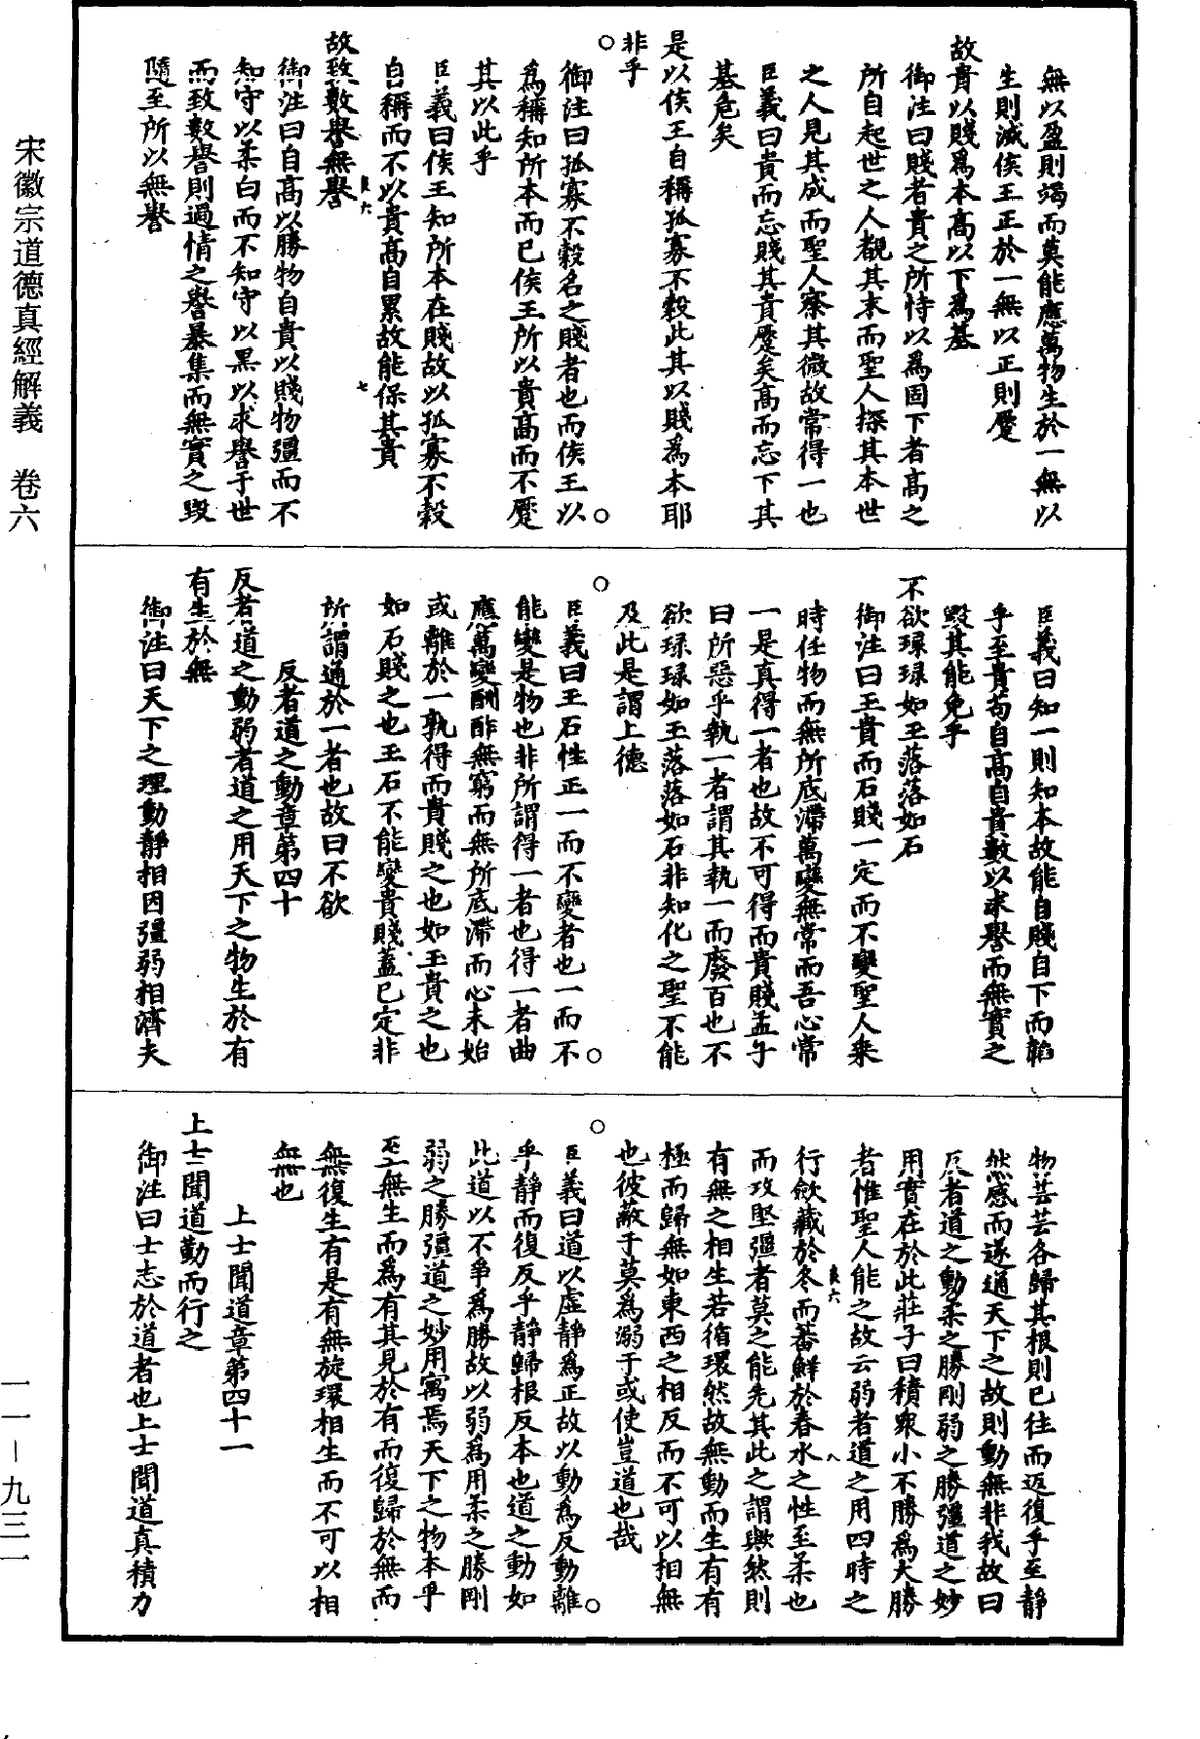 宋徽宗道德真經解義　卷六
無以盈則竭而莫能應萬物生於一無以
生則滅侯王正於一無以正則蹷
故貴以賤爲本髙以下爲基
御注曰賤者貴之所恃以爲固下者髙之
所自起世之人覩其末而聖人探其本世
之人見其成而聖人察其微故常得一也
臣義曰貴而忘賤其貴蹷矣髙而忘下其
基危矣
是以侯王自稱孤寡不穀此其以賤爲本耶
非乎
御注曰孤寡不穀名之賤者也而侯王以
爲稱知所本而已侯王所以貴髙而不蹷
其以此乎
臣義曰侯王知所本在賤故以孤寡不穀
自稱而不以貴髙自累故能保其貴
故致數譽無譽
御注曰自髙以勝物自貴以賤物彊而不
知守以柔白而不知守以黑以求譽于世
而致數譽則過情之譽暴集而無實之毀
隨至所以無譽
臣義曰知一則知本故能自賤自下而韜
乎至貴苟自髙自貴數以求譽而無實之
毀其能免乎
不欲琭琭如玉落落如石
御注曰玉貴而石賤一定而不變聖人乗
時任物而無所底滯萬變無常而吾心常
一是真得一者也故不可得而貴賤孟子
曰所惡乎執一者謂其執一而廢百也不
欲琭琭如玉落落如石非知化之聖不能
及此是謂上德
臣義曰玉石性正一而不變者也一而不
能變是物也非所謂得一者也得一者曲
應萬變酬酢無窮而無所底滯而心未始
或離於一孰得而貴賤之也如玉貴之也
如石賤之也玉石不能變貴賤蓋已定非
所謂通於一者也故曰不欲
反者道之動章第四十
反者道之動弱者道之用天下之物生於有
有生於無
御注曰天下之理動靜相因彊弱相濟夫
物芸芸各歸其根則已往而返復乎至靜
然感而遂通天下之故則動無非我故曰
反者道之動柔之勝剛弱之勝彊道之妙
用實在於此莊子曰積衆小不勝爲大勝
者惟聖人能之故云弱者道之用四時之
行斂藏於冬而蕃鮮於春水之性至柔也
而攻堅彊者莫之能先其此之謂歟然則
有無之相生若循環然故無動而生有有
極而歸無如東西之相反而不可以相無
也彼蔽于莫爲溺于或使豈道也哉
臣義曰道以虛靜爲正故以動爲反動離
乎靜而復反乎靜歸根反本也道之動如
此道以不爭爲勝故以弱爲用柔之勝剛
弱之勝彊道之妙用寓焉天下之物本乎
至無生而爲有其見於有而復歸於無而
無復生有是有無旋環相生而不可以相
無也
上士聞道章第四十一
上士聞道勤而行之
御注曰士志於道者也上士聞道真積力
一一－九三一